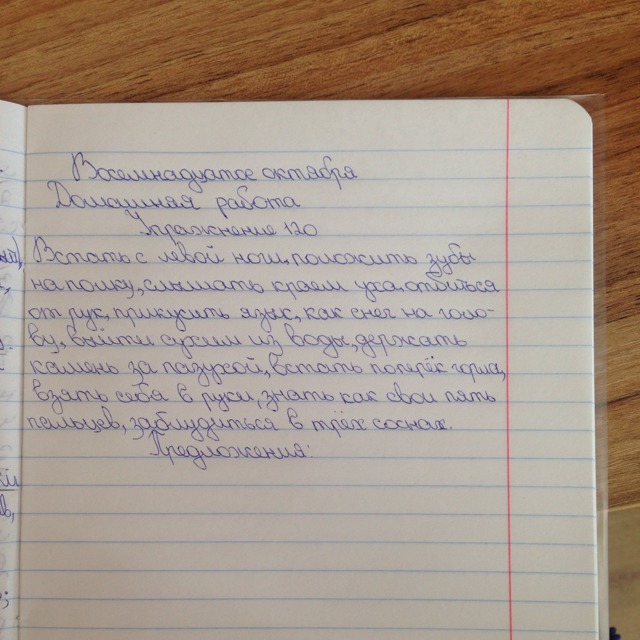 Восемнадцатое октября
Домашняя работа
Упражнение 120
Встать с левой ноги, положить зубы
на полку, слышать краем уха, отбиться
от рук, прикусить язык, как снег на голо-
ву, выйти сухим из воды, держать
камень за пазухой, встать поперёк горла,
взять себя в руки, знать как свои пять
пальцев, заблудиться в трёх соснах.
Предложения: